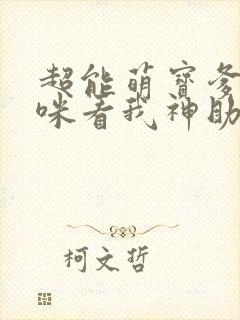 超能萌宝爹
咪看我神助
柯文哲